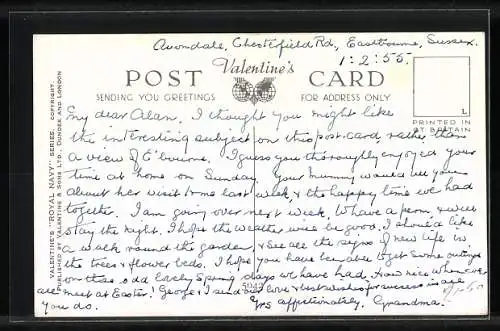 Avondale, Chesterfield Rd., Eastbourne, Sussex.
1:2:55.
Valentine's
POST CARD
SENDING YOU GREETINGS
FOR ADDRESS ONLY
L
PRINTED IN
GT BRITAIN
VALENTINE'S "ROYAL NAVY" SERIES. COPYRIGHT.
PUBLISHED BY VALENTINE & SONS LTD., DUNDEE AND LONDON
My dear Alan, I thought you might like
the interesting subject on this post-card rather than
a view of E'bourne. I guess you thoroughly enjoyed your
time at home on Sunday. Your Mummy would tell you
about her visit here last week, & the happy time we had
together. I am going over next week, to have a perm, & will
stay the night. I hope the weather will be good. I should like
a walk round the garden, & see all the signs of new life in
the trees & flower beds. I hope you have been able to get some outings
on these odd lovely Spring days we have had. How nice when we
all meet at Easter! George & I send our love & best wishes for success in all
you do. Yrs affectionately, Grandma.
5042